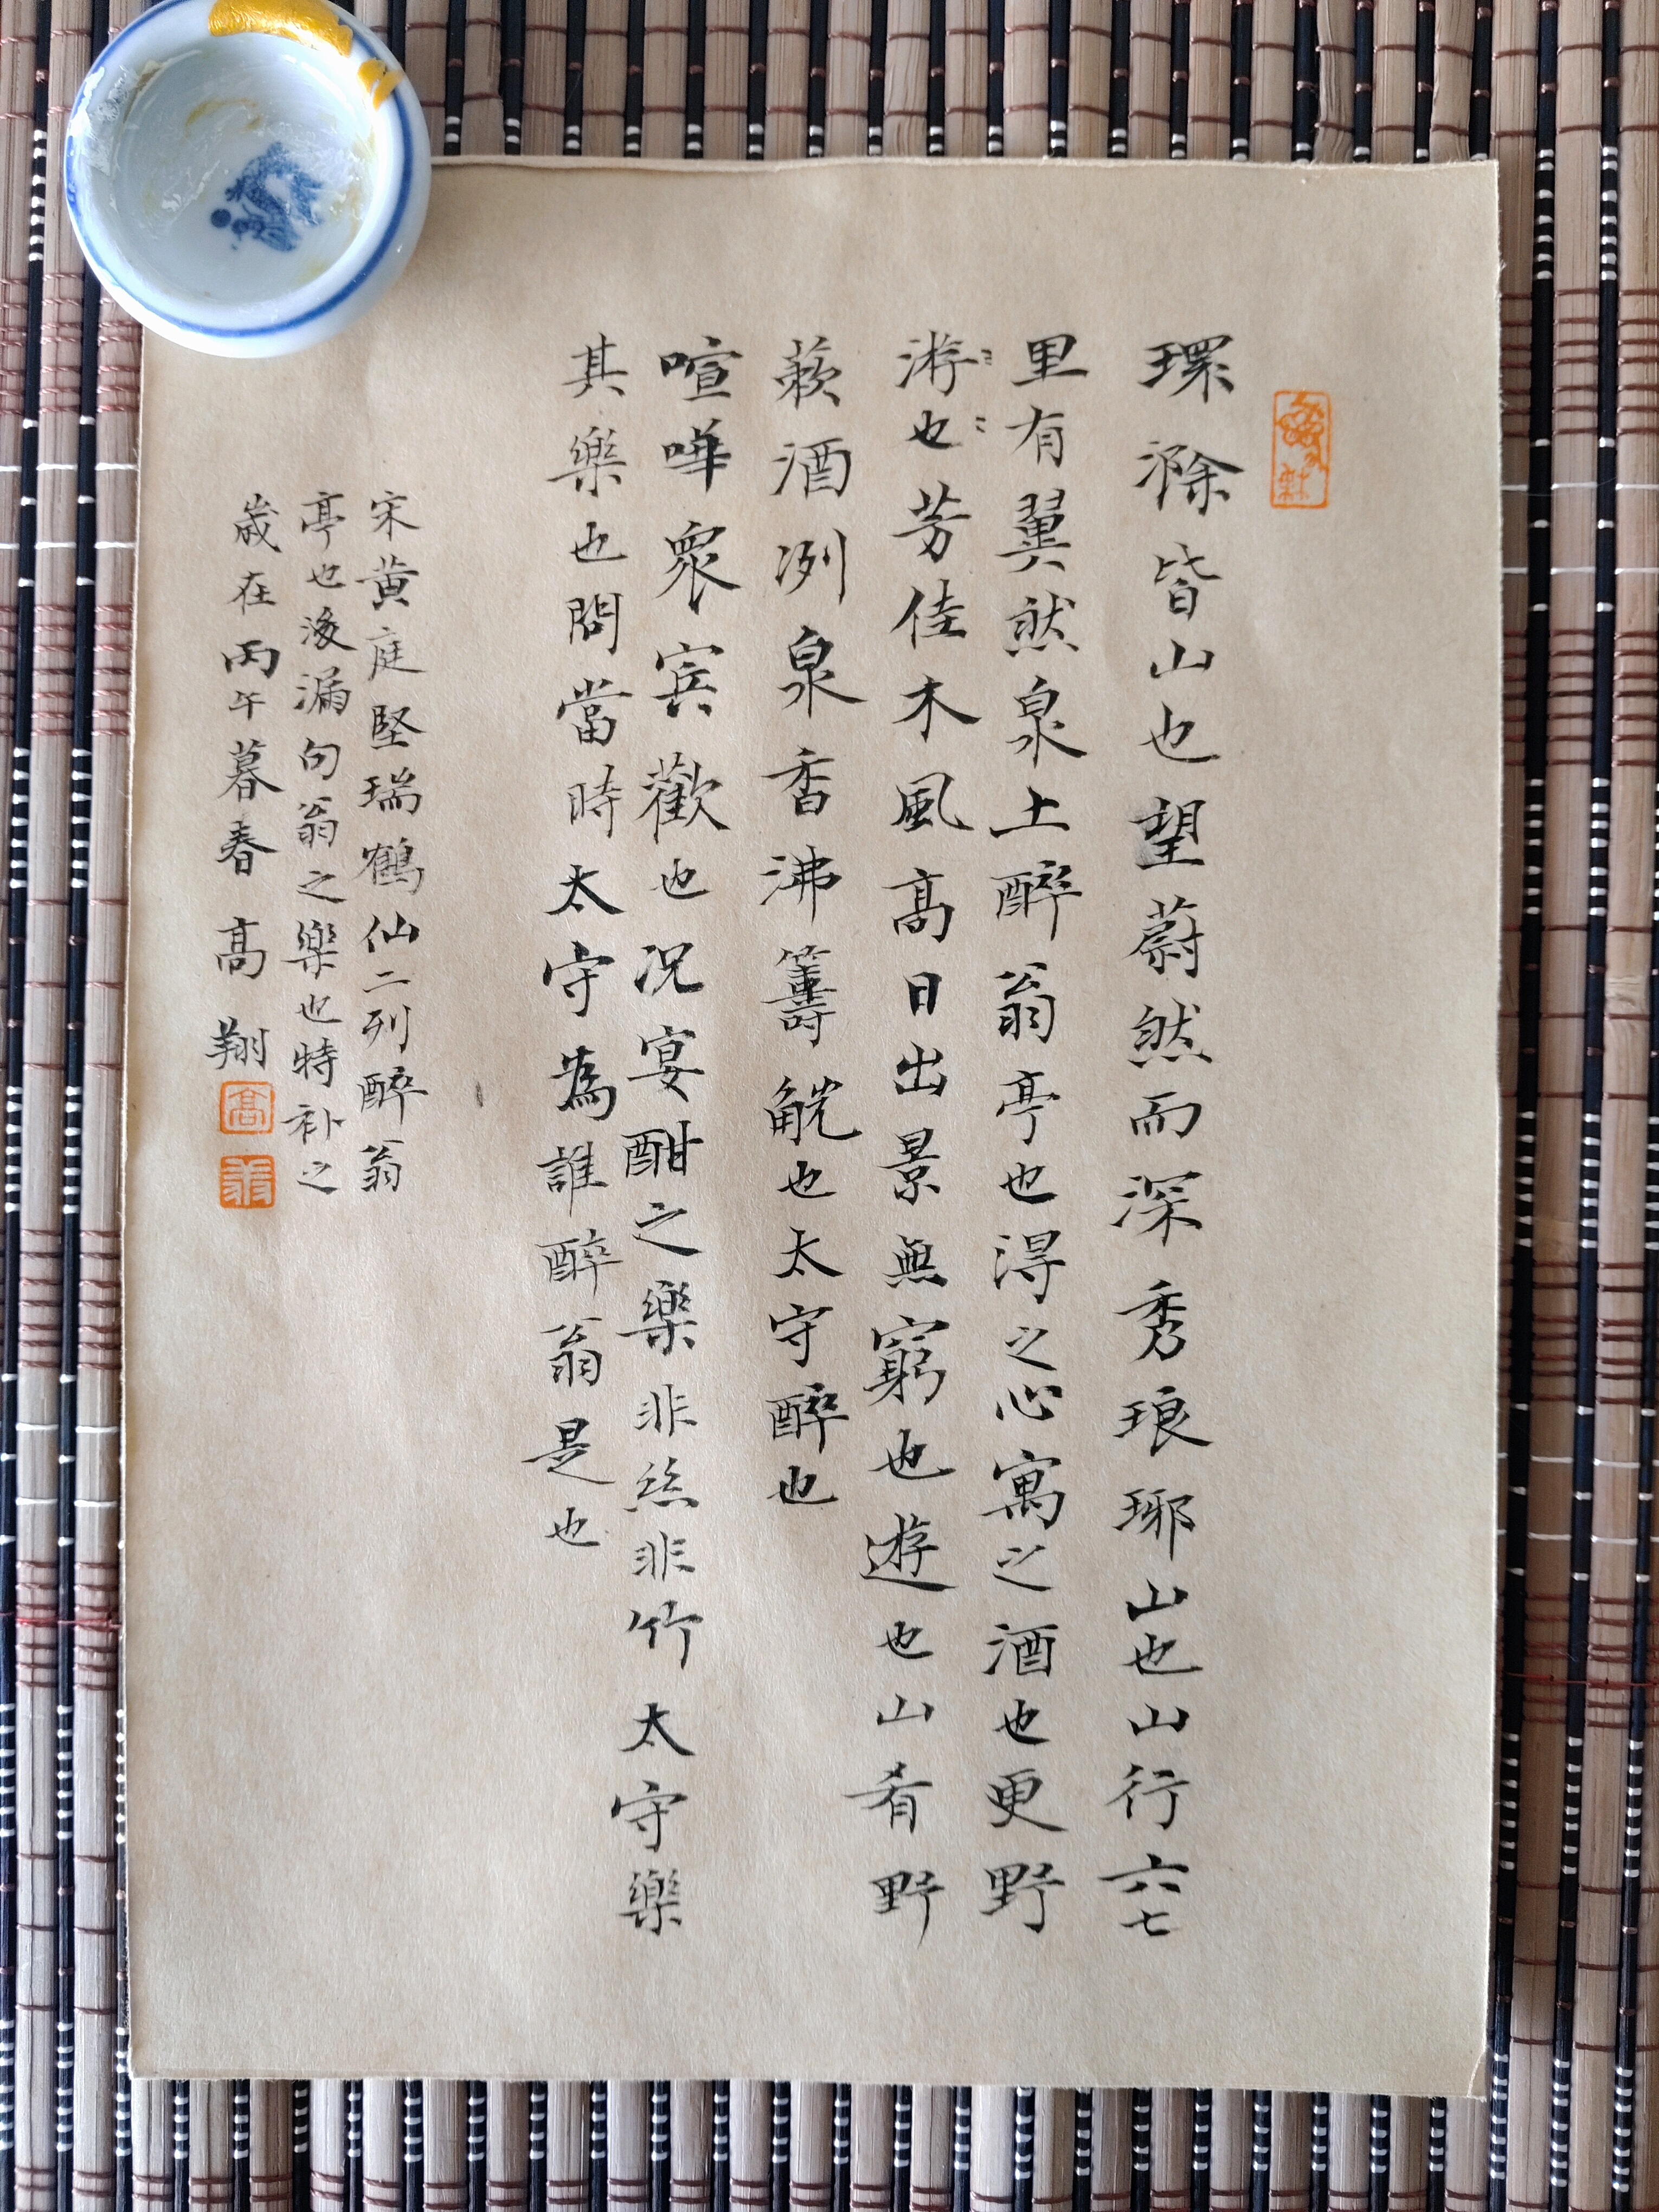 環滁皆山也望蔚然而深秀琅琊山也山行六七
里有翼然泉上醉翁亭也得之心寓之酒也更野
游也芳佳木風高日出景無窮也遊也山肴野
蔌酒冽泉香沸籌觥也太守醉也
喧嘩衆賓歡也况宴酣之樂非絲非竹太守樂
其樂也問當時太守為誰醉翁是也
宋黄庭堅瑞鶴仙二列醉翁
亭也後漏句翁之樂也特补之
歲在丙午暮春高翔
高